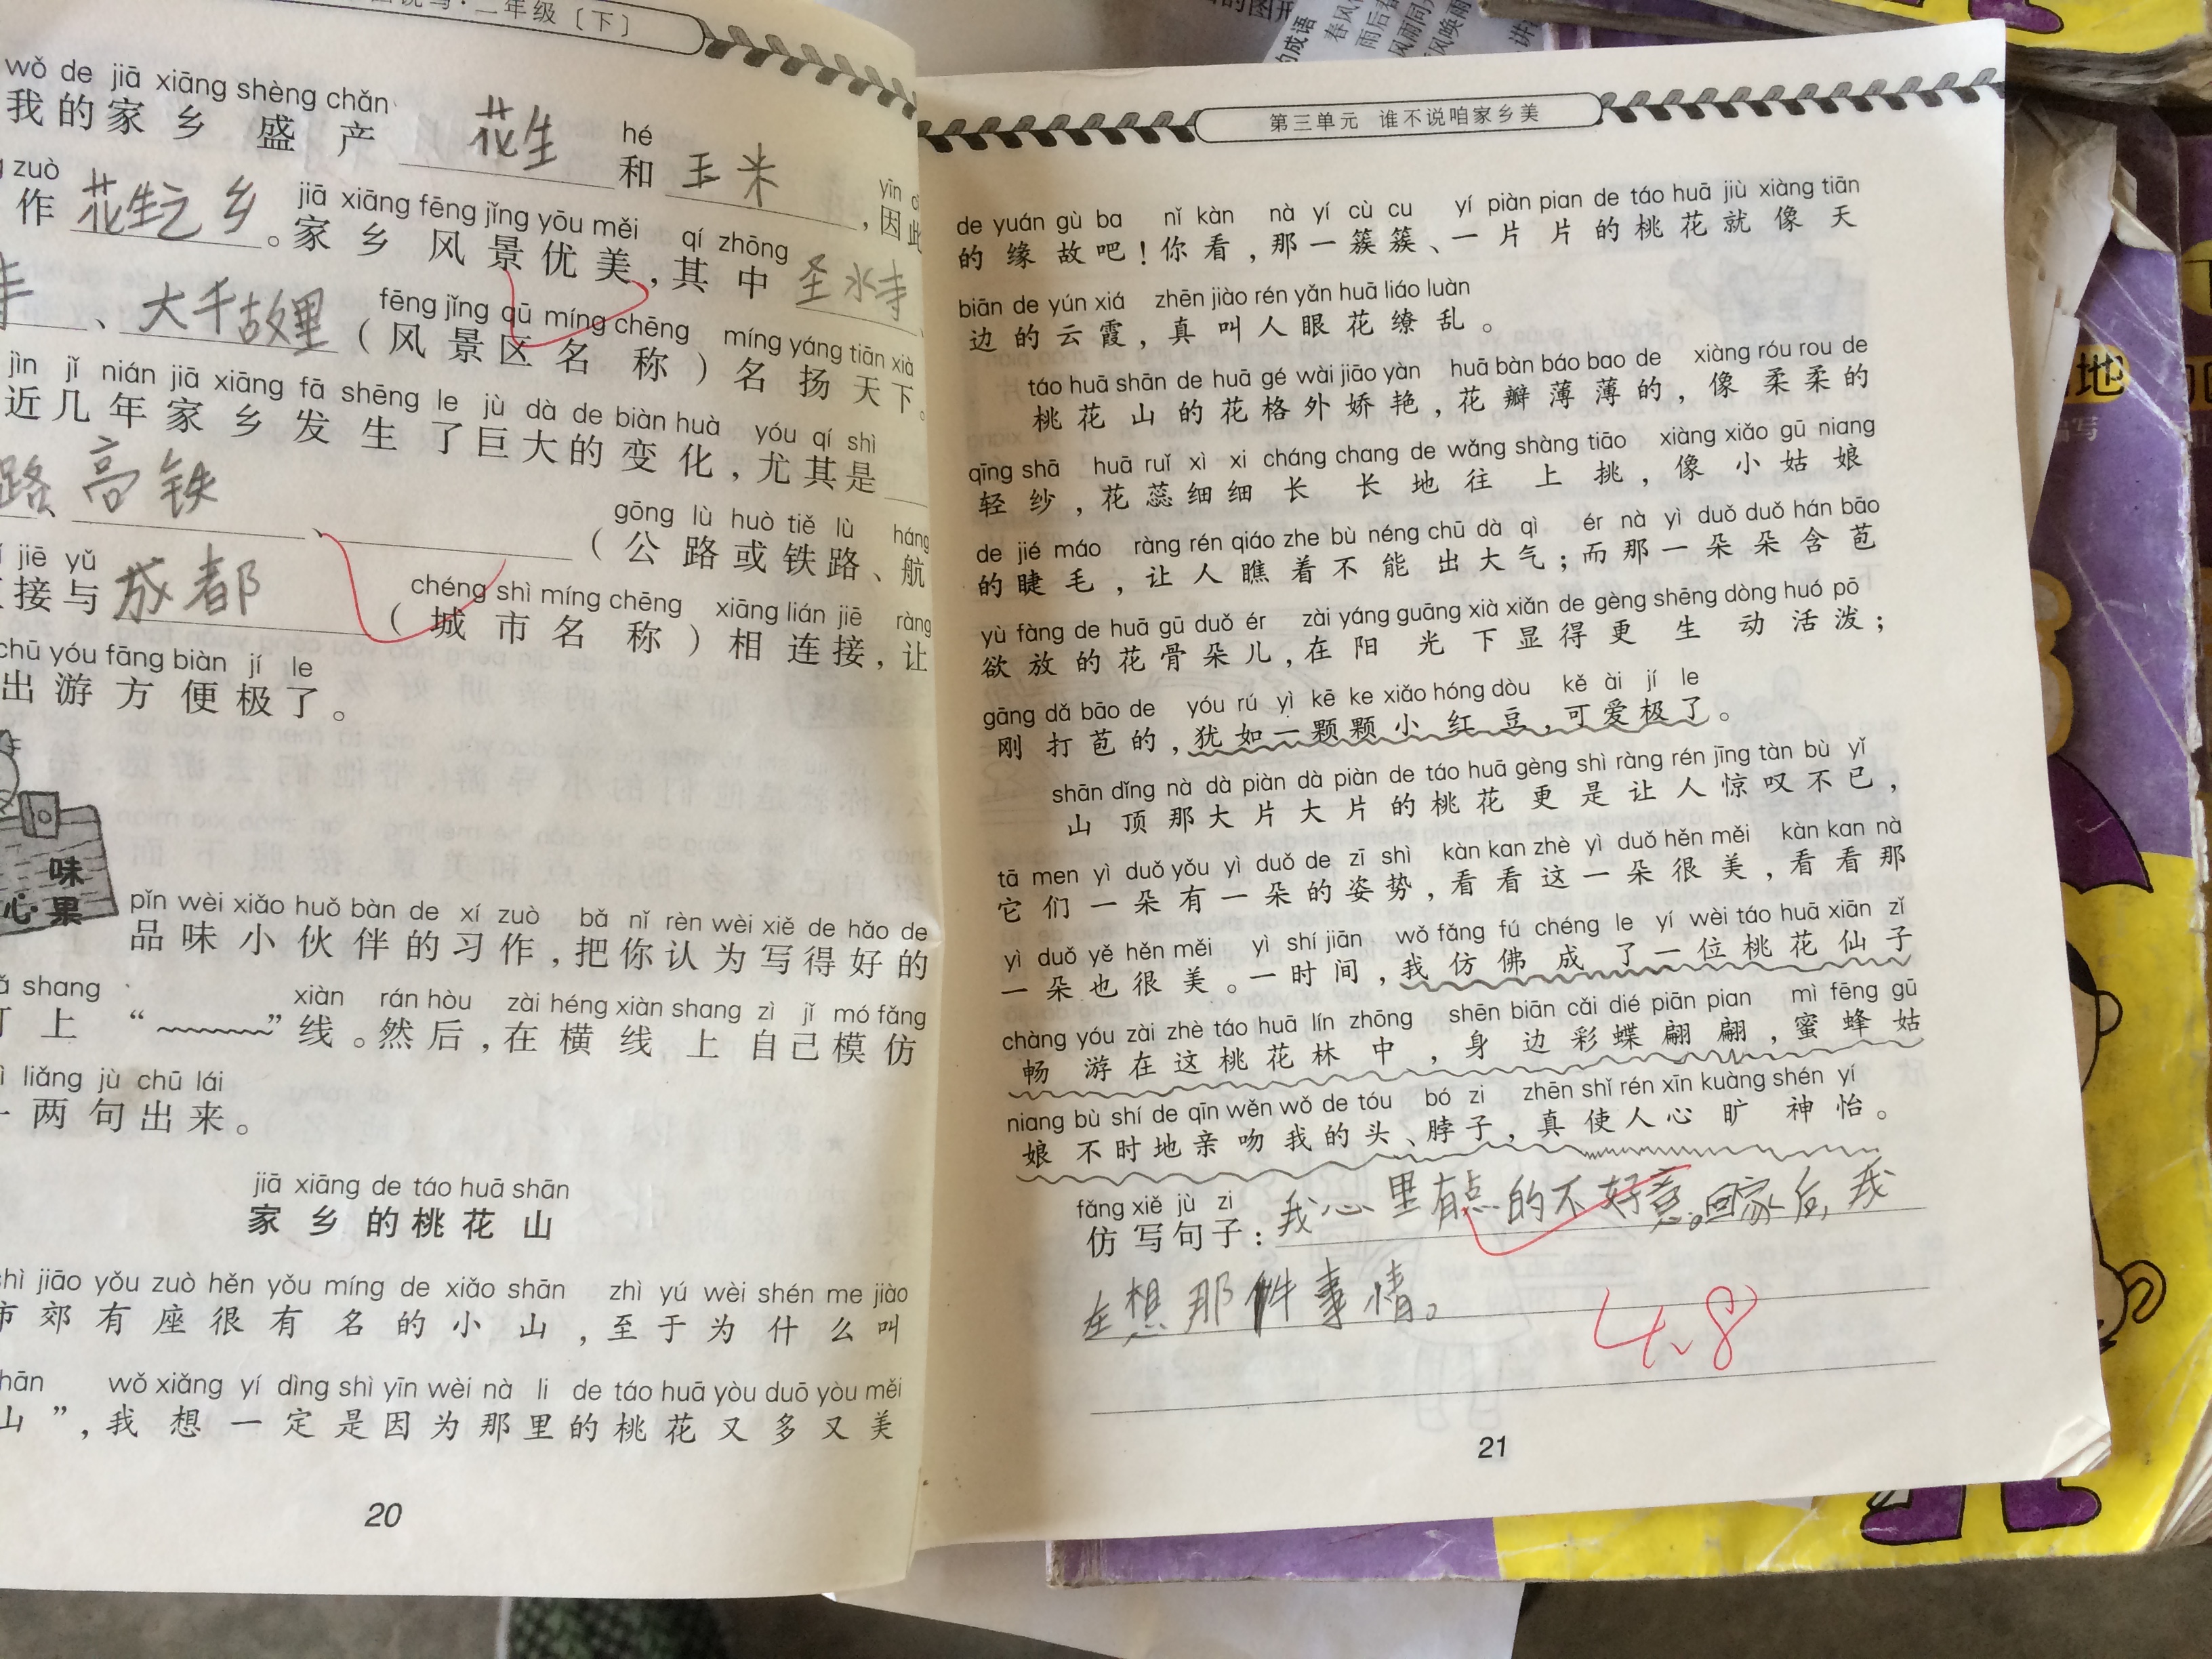 二年级〔下〕
wǒ de jiā xiāng shèng chǎn
我的家乡盛产 花生 hé 和 玉米 ，因此
zuò
作 花生之乡 。
jiā xiāng fēng jǐng yōu měi qí zhōng
家乡风景优美，其中 圣水寺
寺 、 大千故里
fēng jǐng qū míng chēng míng yáng tiān xià
（风景区名称）名扬天下。
jìn jǐ nián jiā xiāng fā shēng le jù dà de biàn huà yóu qí shì
近几年家乡发生了巨大的变化，尤其是
路、高铁 、
gōng lù huò tiě lù háng
（公路或铁路、航
jiē yǔ
接与 成都
chéng shì míng chēng xiāng lián jiē ràng
（城市名称）相连接，让
chū yóu fāng biàn jí le
出游方便极了。
味
心果
pǐn wèi xiǎo huǒ bàn de xí zuò bǎ nǐ rèn wèi xiě de hǎo de
品味小伙伴的习作，把你认为写得好的
shang xiàn rán hòu zài héng xiàn shang zì jǐ mó fǎng
上“ ”线。然后，在横线上自己模仿
liǎng jù chū lái
两句出来。
jiā xiāng de táo huā shān
家乡的桃花山
jiāo yǒu zuò hěn yǒu míng de xiǎo shān zhì yú wèi shén me jiào
市郊有座很有名的小山，至于为什么叫
wǒ xiǎng yí dìng shì yīn wèi nà li de táo huā yòu duō yòu měi
山”，我想一定是因为那里的桃花又多又美
20
第三单元 谁不说咱家乡美
de yuán gù ba nǐ kàn nà yí cù cu yí piàn pian de táo huā jiù xiàng tiān
的缘故吧！你看，那一簇簇、一片片的桃花就像天
biān de yún xiá zhēn jiào rén yǎn huā liáo luàn
边的云霞，真叫人眼花缭乱。
táo huā shān de huā gé wài jiāo yàn huā bàn báo bao de xiàng róu rou de
桃花山的花格外娇艳，花瓣薄薄的，像柔柔的
qīng shā huā ruǐ xì xi cháng chang de wǎng shàng tiāo xiàng xiǎo gū niang
轻纱，花蕊细细长长地往上挑，像小姑娘
de jié máo ràng rén qiáo zhe bù néng chū dà qì ér nà yì duǒ duǒ hán bāo
的睫毛，让人瞧着不能出大气；而那一朵朵含苞
yù fàng de huā gū duǒ ér zài yáng guāng xià xiǎn de gèng shēng dòng huó pō
欲放的花骨朵儿，在阳光下显得更生动活泼；
gāng dǎ bāo de yóu rú yì kē ke xiǎo hóng dòu kě ài jí le
刚打苞的，犹如一颗颗小红豆，可爱极了。
shān dǐng nà dà piàn dà piàn de táo huā gèng shì ràng rén jīng tàn bù yǐ
山顶那大片大片的桃花更是让人惊叹不已，
tā men yì duǒ yǒu yì duǒ de zī shì kàn kan zhè yì duǒ hěn měi kàn kan nà
它们一朵有一朵的姿势，看看这一朵很美，看看那
yì duǒ yě hěn měi yì shí jiān wǒ fǎng fú chéng le yí wèi táo huā xiān zǐ
一朵也很美。一时间，我仿佛成了一位桃花仙子
chàng yóu zài zhè táo huā lín zhōng shēn biān cǎi dié piān pian mì fēng gū
畅游在这桃花林中，身边彩蝶翩翩，蜜蜂姑
niang bù shí de qīn wěn wǒ de tóu bó zi zhēn shǐ rén xīn kuàng shén yí
娘不时地亲吻我的头、脖子，真使人心旷神怡。
fǎng xiě jù zi
仿写句子：我心里有点的不好意。回家后，我
在想那件事情。
4.8
21